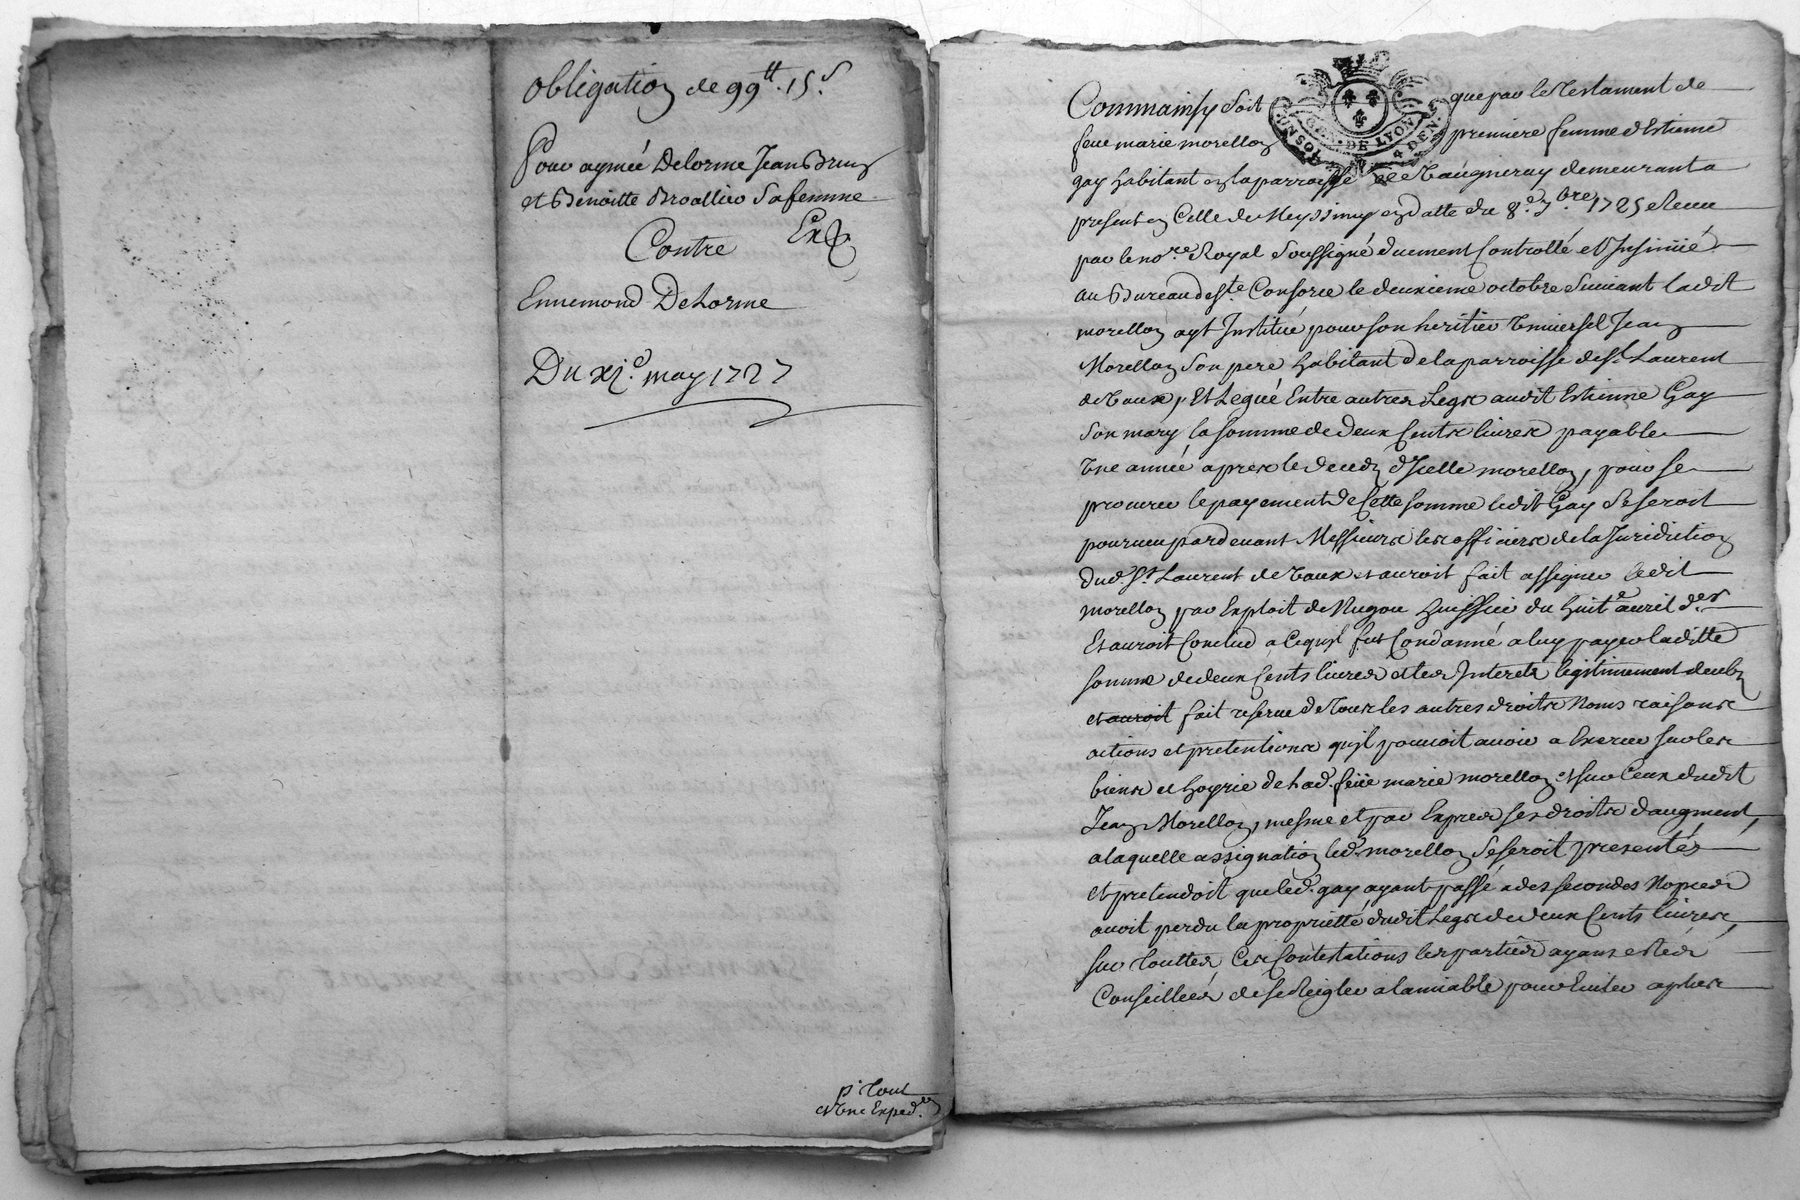 obligation de 99tt. 15s.
Pour aymeé Delorme Jean Brun
et Benoitte Broallier sa femme
Contre Exp
Ennemond Delorme
Du xj.e may 1727
p.r tout
et Une Exped.on
Comm'ainsy soit que par le Testament de
GEN. DE LYON
UN SOL 4 DEN.
feue marie morellon premiere femme d'Estienne
gay habitant en la parroisse de Vaugneray demeurant a
present en Celle de Meyssimy en datte du 8.e 7.bre 1725 Receu
par le no.re Royal soussigné duement Controllé et Insinüé
au Bureau de s.te Consorce le deuxieme octobre suivant ladit
morellon ayt Institué pour son heritier Universel Jean
Morellon son pere habitant de la parroisse de s.t Laurent
de Vaux, Et Legué Entre autres Legs audit Estienne Gay
son mary la somme de deux Cents livres payable
Une année apres le deceds d'Icelle morellon, pour se
procurer le payement de Cette somme ledit Gay se seroit
pourveu pardevant Messieurs les officiers de la Juridiction
dud. s.t Laurent de Vaux et auroit fait assigner ledit
morellon par Exploit de Nugou huissier du huit.e avril d.er
Et auroit Conclud a Cequ'jl fut Condanné a luy payer laditte
somme de deux Cents livres et les Interets legitimement deubs
et auroit fait reserve de Tous les autres droits Noms raisons
actions et pretentions qu'jl pouvoit avoir a Exercer sur les
biens et hoyrie de lad. feüe marie morellon et sur Ceux dudit
Jean Morellon, mesme et par Expres ses droits d'augment,
a laquelle assignation led. morellon se seroit presentés
et pretendoit que led. gay ayant passé a des secondes Nopces
avoit perdu la proprietté dudit Legs de deux Cents livres,
sur Touttes Ces Contestations les parties ayans estées
Conseillées de se Reigler a lamiable pour Eviter a plus